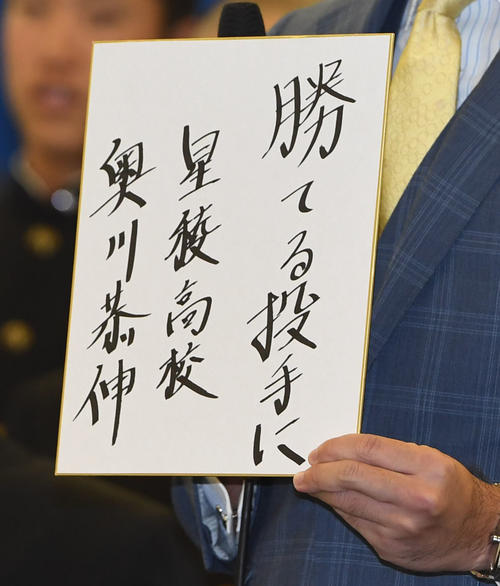 勝てる投手に
星稜高校
奥川恭伸